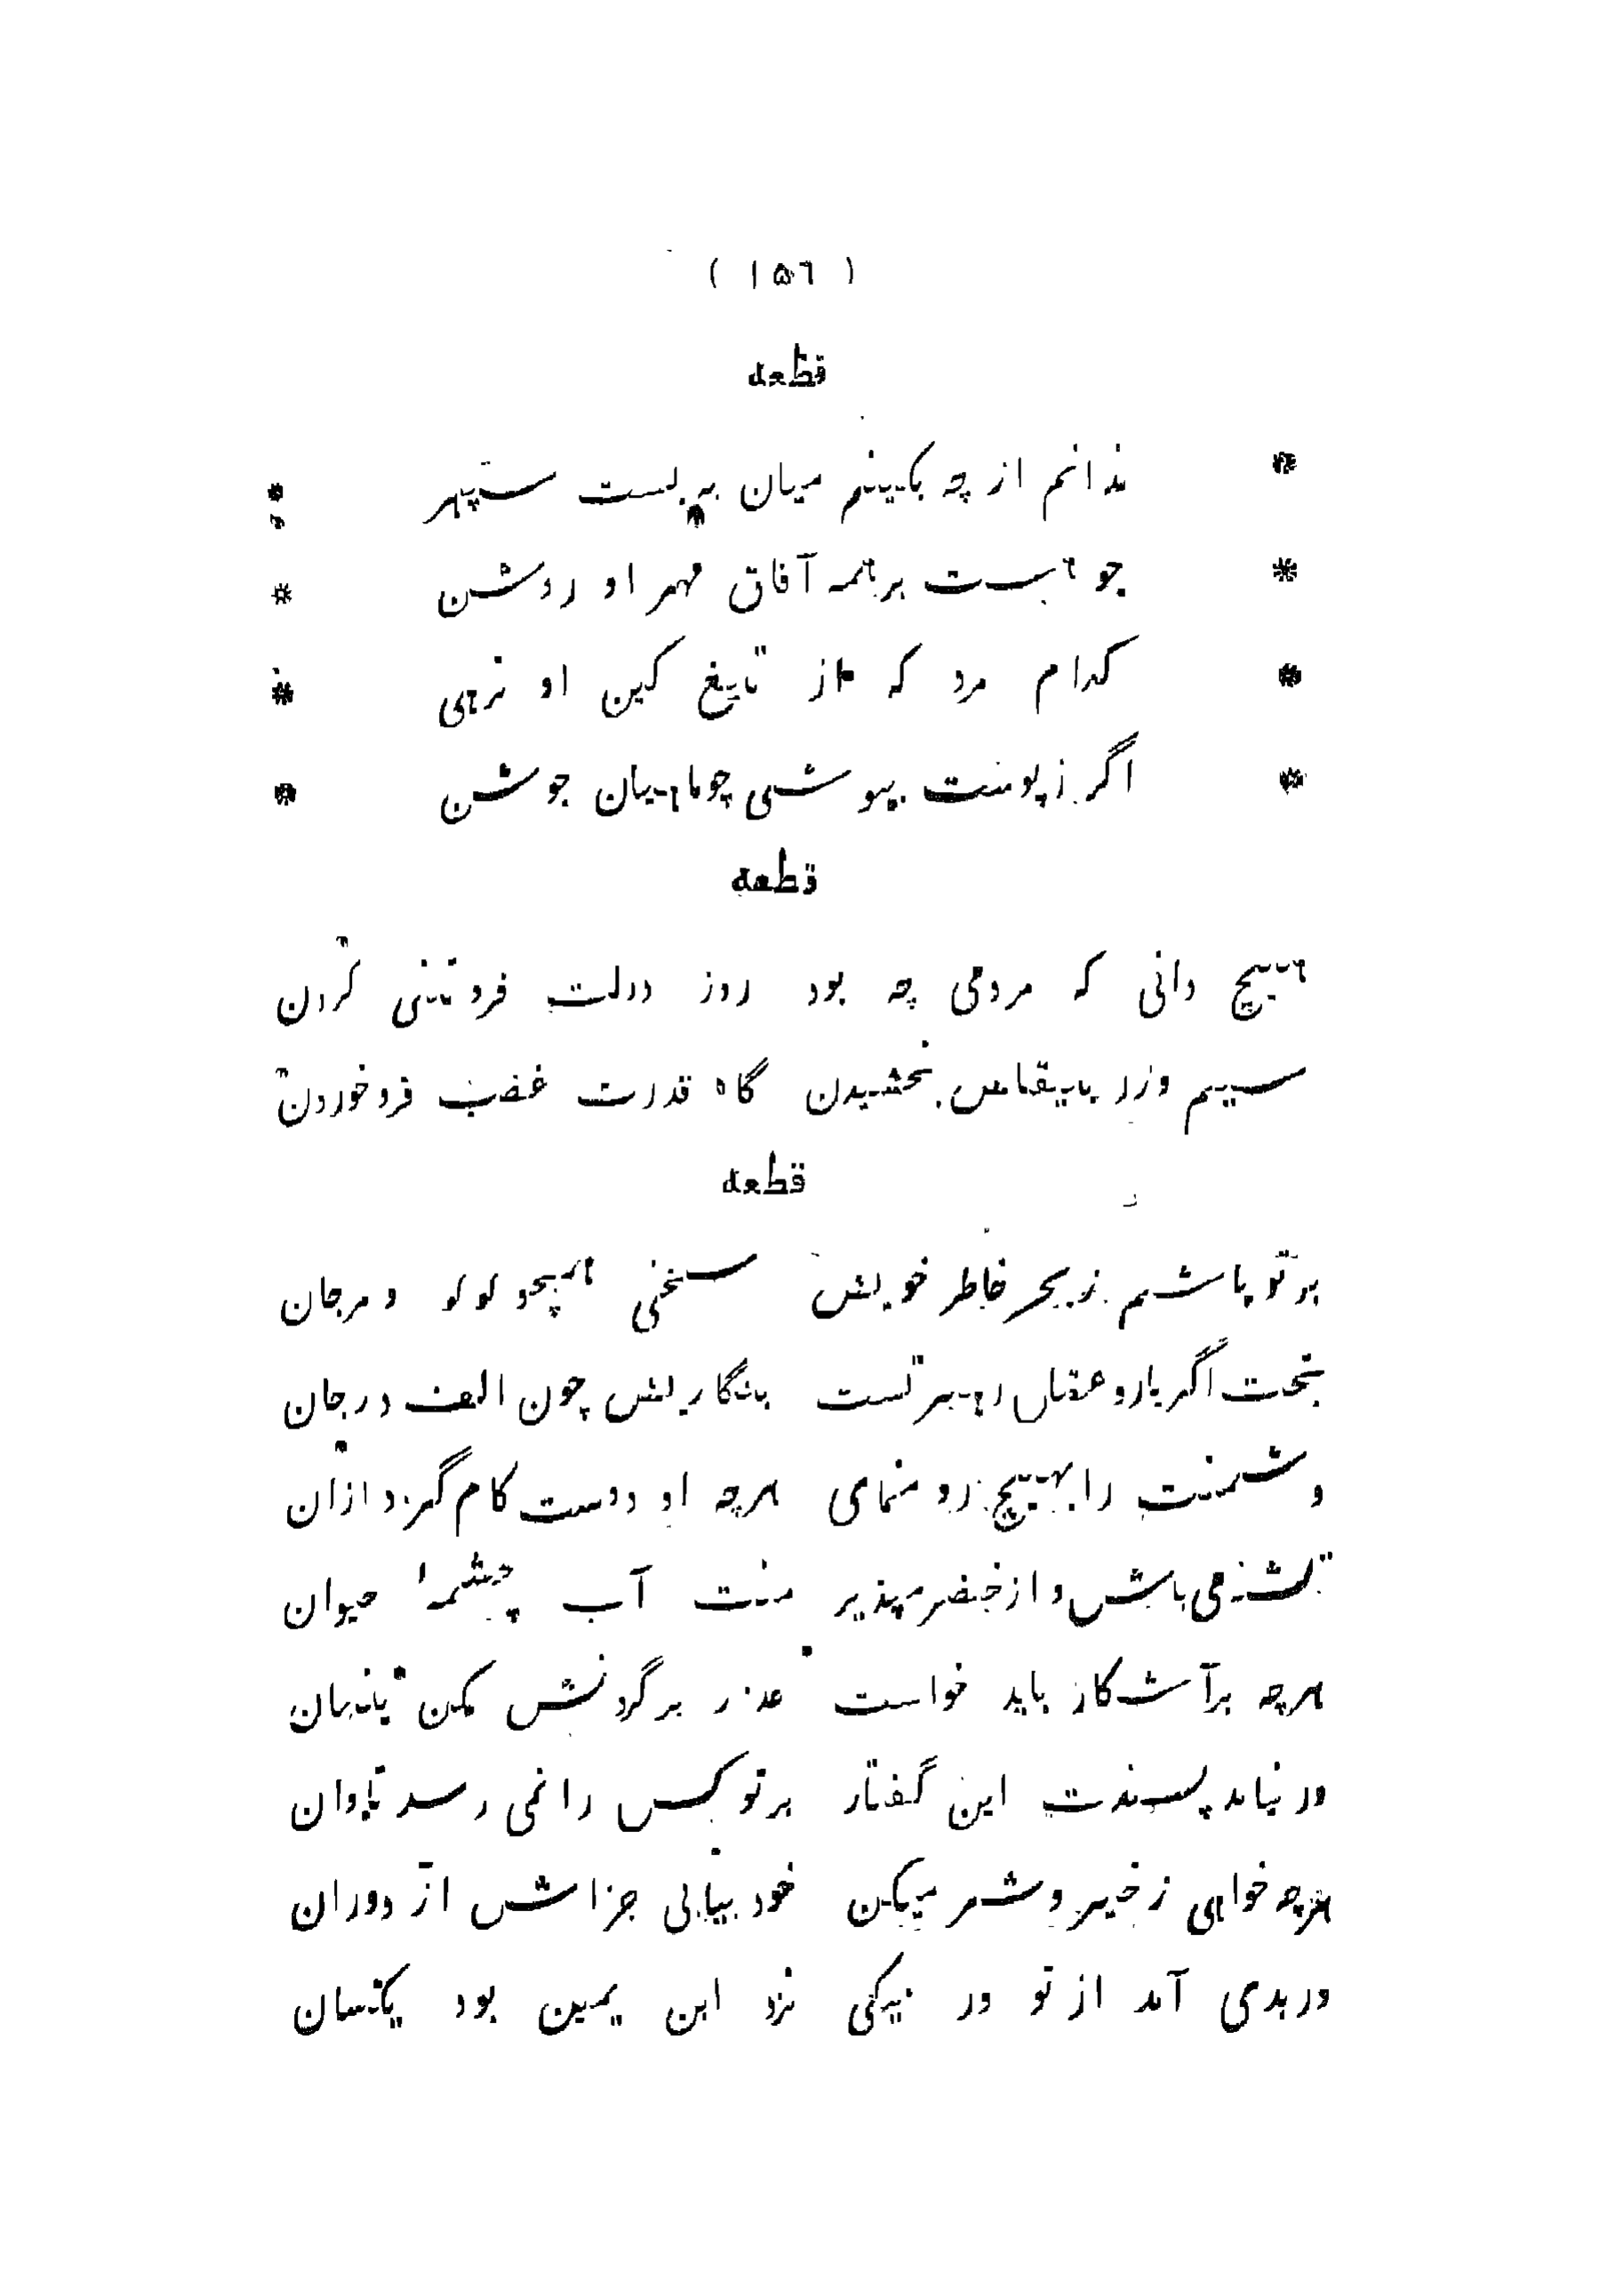 ( ۱۵۶ )
قطعه
* ندانم از چه بکینم میان به بست سپهر *
* چو هست بر همه آفاق مهر او روشن *
* کدام مرد که از تیغ کین او نرهی *
* اگر ز پوست بپوشی چو ماهیان جوشن *
قطعه
هیچ دانی که مردمی چه بود روز دولت فروتنی کردن
سیم وزر بخشیدن گاه قدرت غضب فروخوردن
قطعه
بر تو پاشم ز بحر خاطر خویش سخنی همچو لولو و مرجان
بخت اگر یار و عقل رهبر تست بنگاریش چون الف در جان
دشمنت را بهیچ رو منمای هرچه او دوست کام گردد ازان
تشنه می باش و از خضر مپذیر منت آب چشمهٔ حیوان
هرچه برآشکار باید خواست عذر بر گردنش مکن پنهان
ور نیاید پسندت این گفتار بر تو کس را نمی رسد تاوان
هرچه خواهی ز خیر و شر میکن خود بیابی جزاش از دوران
ور بدی آمد از تو ور نیکی نزد ابن یمین بود یکسان